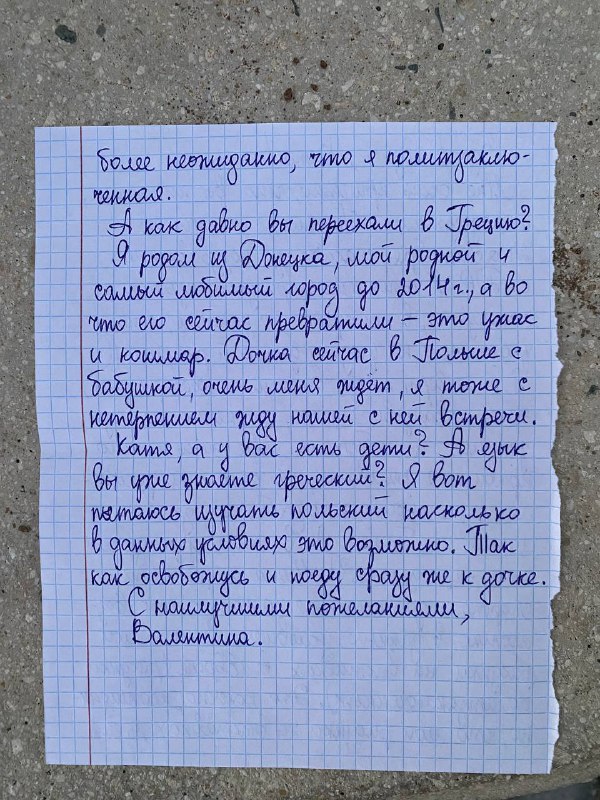 более неожиданно, что я политзаклю-
ченная.
А как давно вы переехали в Грецию?
Я родом из Донецка, мой родной и
самый любимый город до 2014г., а во
что его сейчас превратили – это ужас
и кошмар. Дочка сейчас в Польше с
бабушкой, очень меня ждёт, я тоже с
нетерпением жду нашей с ней встречи.
Катя, а у вас есть дети? А язык
вы уже знаете греческий? Я вот
пытаюсь изучать польский насколько
в данных условиях это возможно. Так
как освобожусь и поеду сразу же к дочке.
С наилучшими пожеланиями,
Валентина.